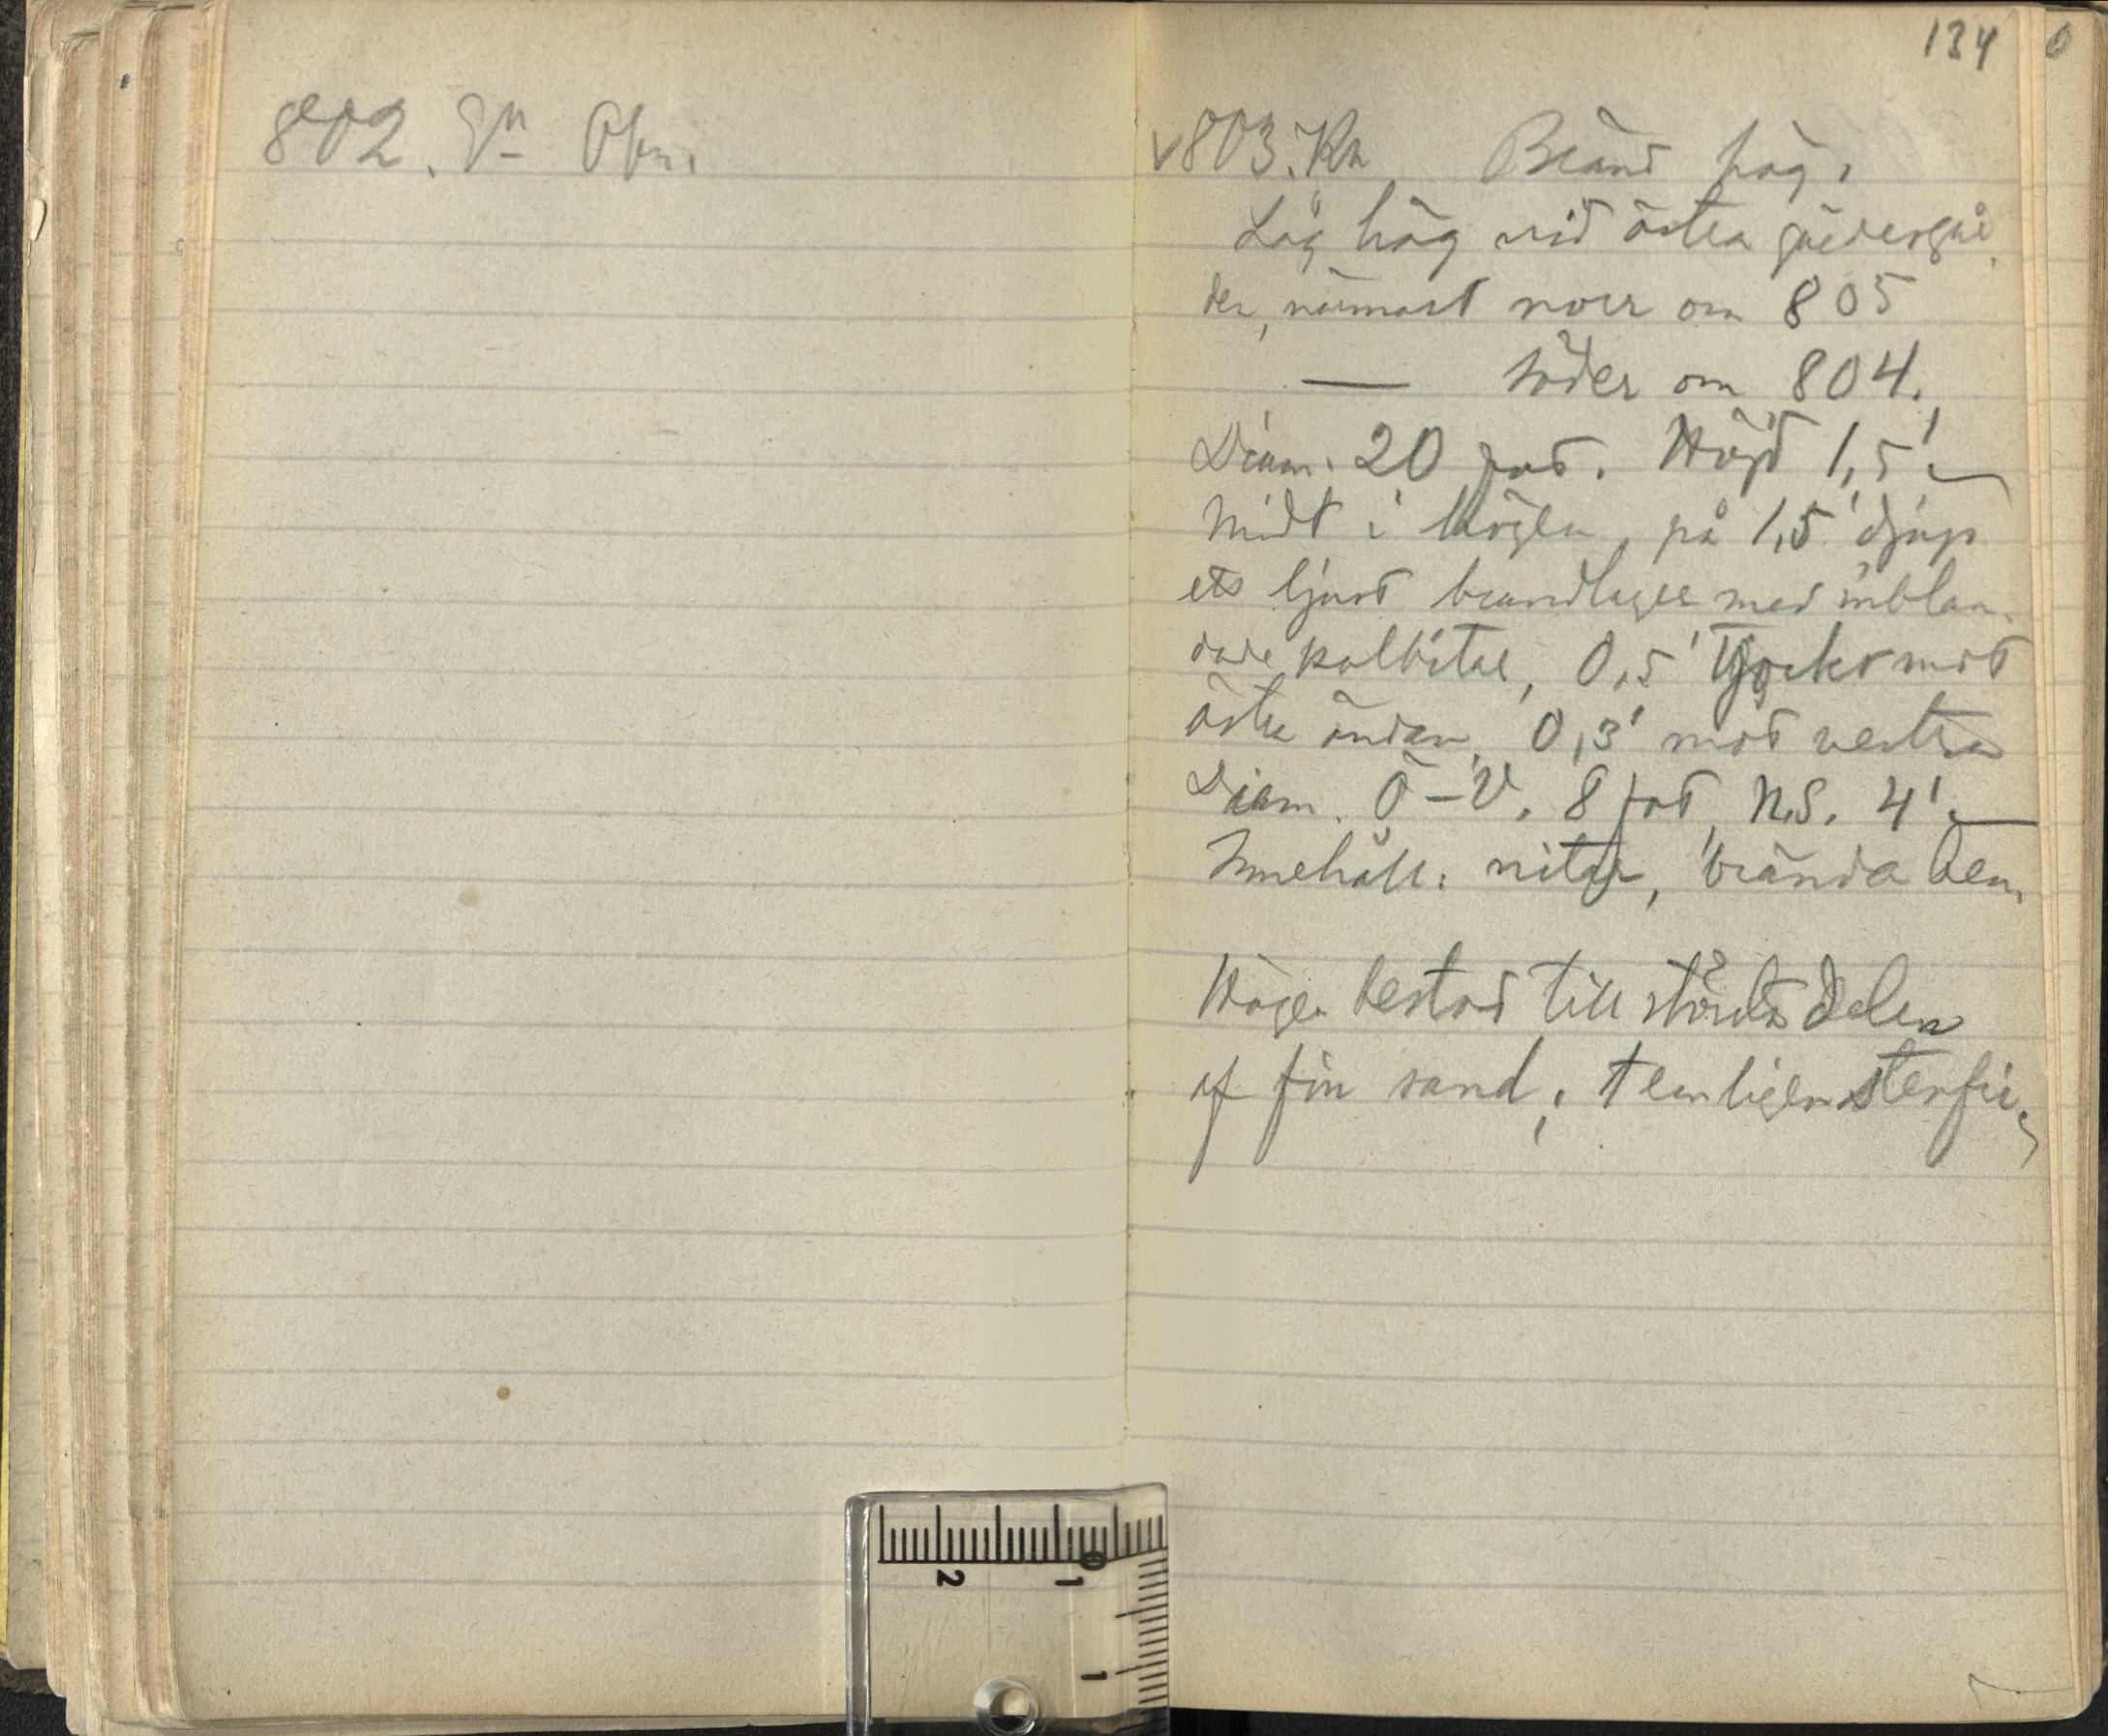 802. Obr.
134
v 803. Ka Bränd hög.
Låg hög vid östra gärdesgår
den, närmast norr om 805
— söder om 804.
Diam. 20 fot. Höjd 1,5'. —
Midt i högen, på 1,5' djup
ett ljust brandlager med inblan-
dade kolbitar, 0,5' tjockt mot
östra ändan, 0,3' mot vestra
Diam. Ö–V. 8 fot, N.S. 4'. —
Innehåll: nitar, brända ben.
Högen bestod till största delen
af fin sand, temligen stenfri.
2 1 0
1